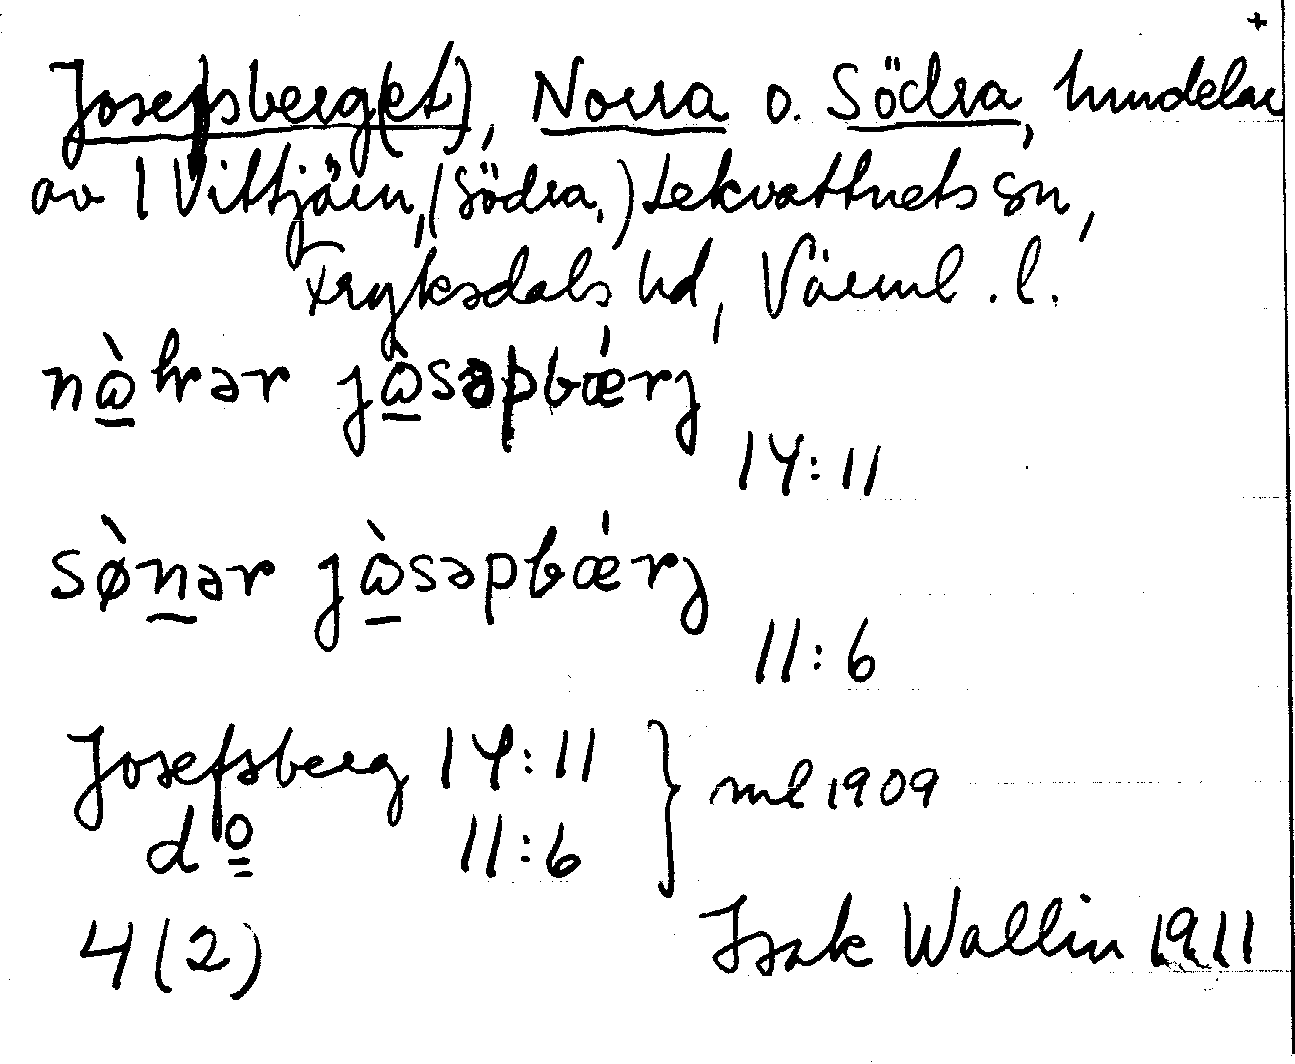 +
Josefsberg(et), Norra o. Södra, hmdelar
av 1 Vittjärn, (Södra,) Lekvattnets sn,
Fryksdals hd, Värml. l.
nòrar jòsəpbǽrj
14:11
sø̀nər jòsəpbǽrj
11:6
Josefsberg 14:11 } ml 1909
do 11:6
4(2) Isak Wallin 1911